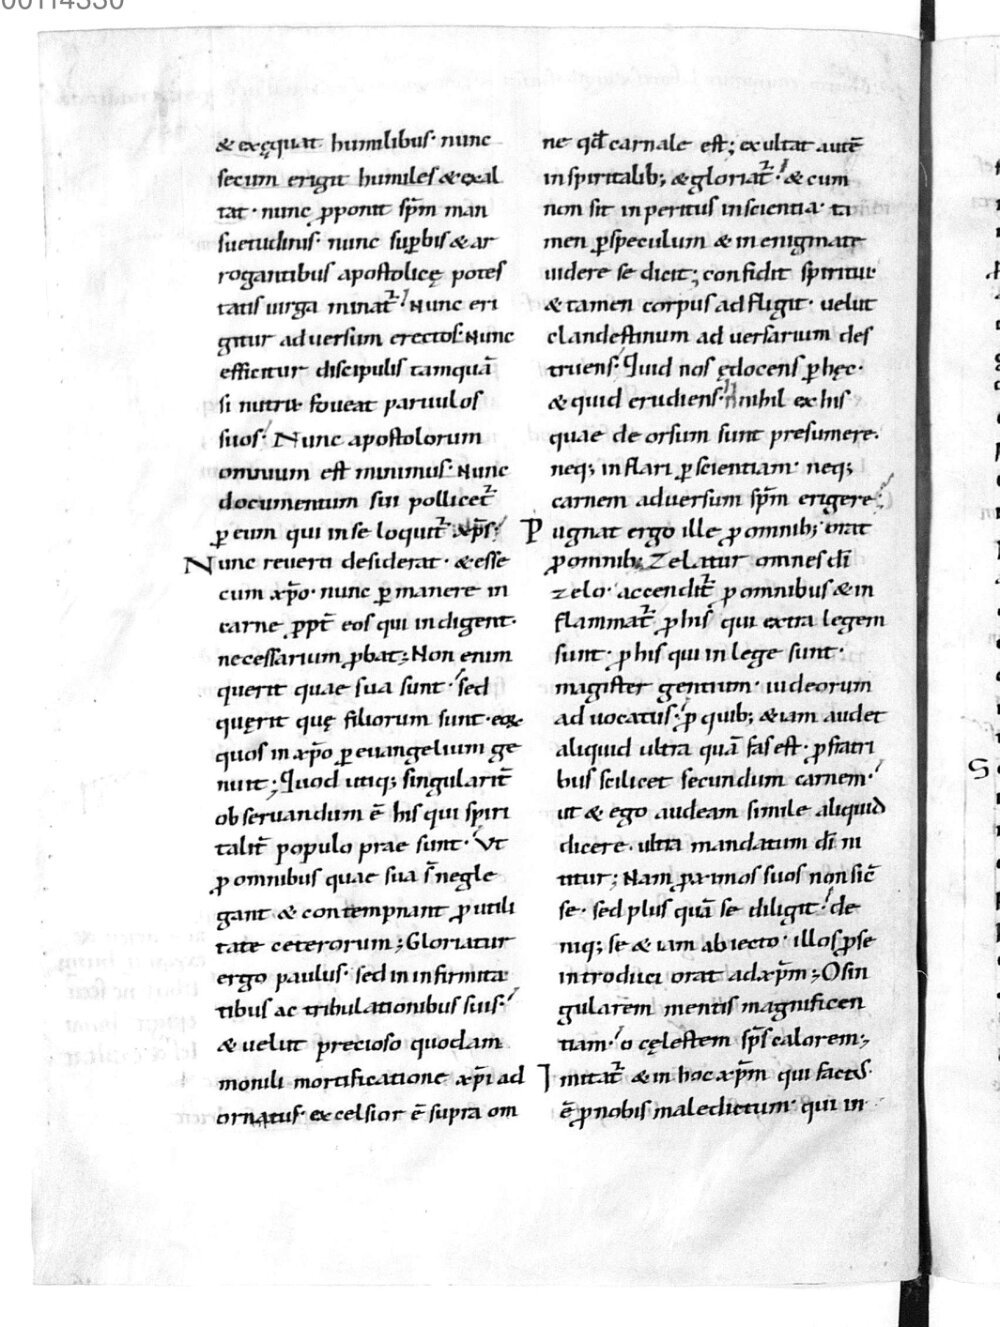 & exęquat humilibus· nunc
secum erigit humiles & exal
tat· nunc ꝓponit sp̄m man
suetudinis· nunc suꝑbis & ar
rogantibus apostolicę potes
tatis uirga minat᷑! Nunc eri
gitur aduersum erectos· Nunc
efficitur discipulis tamquā
si nutrix foueat paruulos
suos! Nunc apostolorum
omnium est minimus· Nunc
documentum sui pollicet᷑
ꝑ eum qui in se loquit᷑ xp̄s!
Nunc reuerti desiderat· & esse
cum xp̄o· nunc ꝑmanere in
carne ꝓpt̄ eos qui indigent·
necessarium ꝓbat; Non enim
querit quae sua sunt· sed
quęrit quę filiorum sunt· eos
quos in xp̄o ꝑ euangelium ge
nuit; Quod utiq; singularit̄
obseruandum ē his qui spiri
talit̄ populo prae sunt· Ut
ꝓ omnibus quae sua s̄ negle
gant & contempnant ꝓ utili
tate ceterorum; Gloriatur
ergo paulus· sed in infirmita
tibus ac tribulationibus suis!
& uelut precioso quodam
monili mortificatione xp̄i ad
ornatus· excelsior ē supra om
ne qđ carnale est; exultat autē
in spiritalib; & gloriat᷑! & cum
non sit inperitus in scientia· ta
men ꝑ speculum & in enigmate
uidere se dicit; confidit spiritu·
& tamen corpus adfligit· uelut
clandestinum aduersarium des
truens! Quid nos edocens ꝑ hęc·
& quid erudiens! nihil ex his
quae deorsum sunt presumere·
neq; inflari ꝑ scientiam· neq;
carnem aduersum sp̄m erigere!
Pugnat ergo ille ꝓ omnib; orat
ꝓ omnib; Zelatur omnes dī
zelo· accendit᷑ ꝓ omnibus & in
flammat᷑ ꝓ his qui extra legem
sunt· ꝓ his qui in lege sunt·
magister gentium· iudeorum
aduocatus· ꝓ quib; & iam audet
aliquid ultra quā fas est· ꝓ fratri
bus scilicet secundum carnem·!
ut & ego audeam simile aliquid
dicere· ultra mandatum dī ni
titur; Nam ꝓximos suos non sic̄
se· sed plus quā se diligit! de
niq; se & iam abiecto· illos ꝓse
introduci orat ad xp̄m; O sin
gularem mentis magnificen
tiam·! o cęlestem sp̄s calorem;
Imitat᷑ & in hoc xp̄m qui factus·
ē ꝓ nobis maledictum· qui in